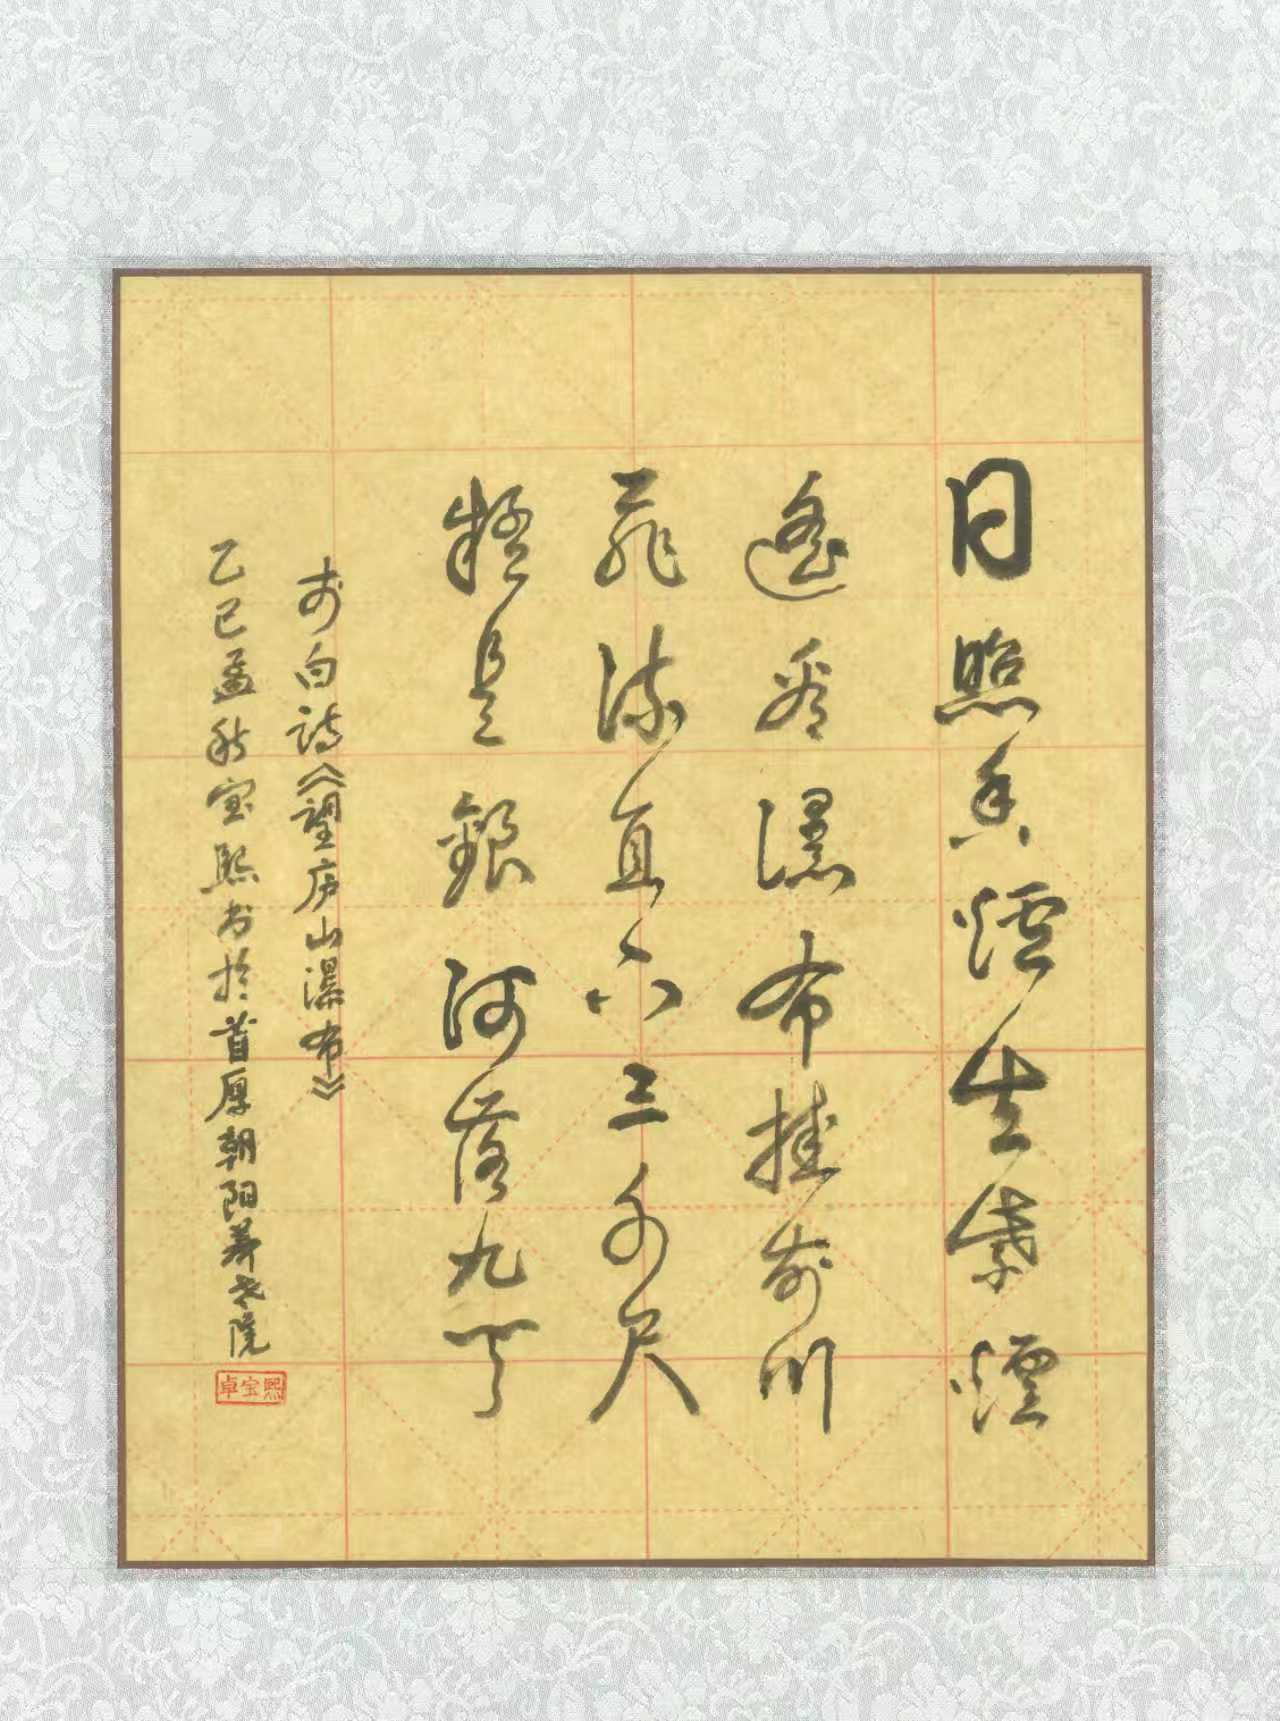 日照香煙生紫煙
遙看瀑布挂前川
飛流直下三千尺
疑是銀河落九天
李白诗《望庐山瀑布》
乙巳孟秋宝熙书於首厚朝阳养老院
卓宝熙